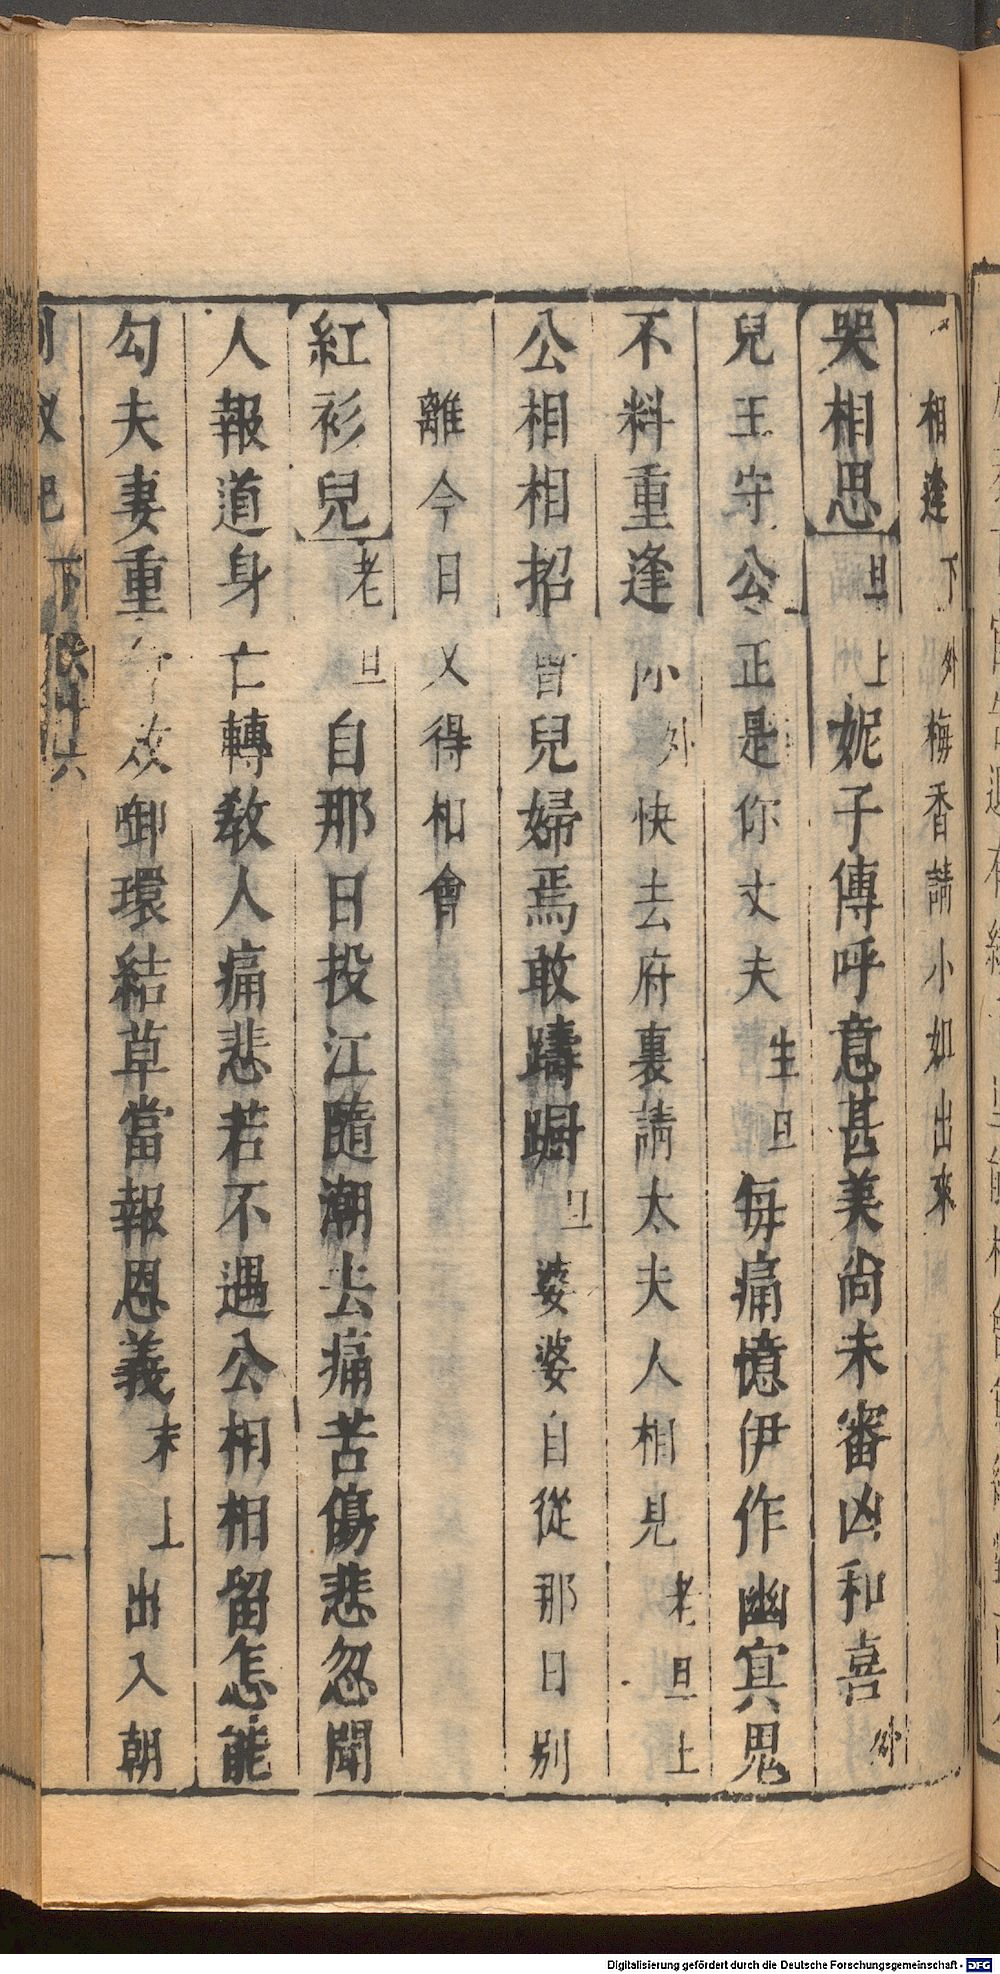 相逢下外梅香請小姐出來
哭相思旦上妮子傳呼意甚美尚未審凶和喜外
兒王守公正是你丈夫生旦每痛憶伊作幽冥鬼
不料重逢你外快去府裏請太夫人相見老旦上
公相相招 兒婦焉敢躊躕旦婆婆自從那日別
離今日又得相會
紅衫兒老旦自那日投江隨潮去痛苦傷悲忽聞
人報道身亡轉教人痛悲若不遇公相相留怎能
勾夫妻重 啣環結草當報恩義末上出入朝
釵記 下 六
Digitalisierung gefördert durch die Deutsche Forschungsgemeinschaft - DFG